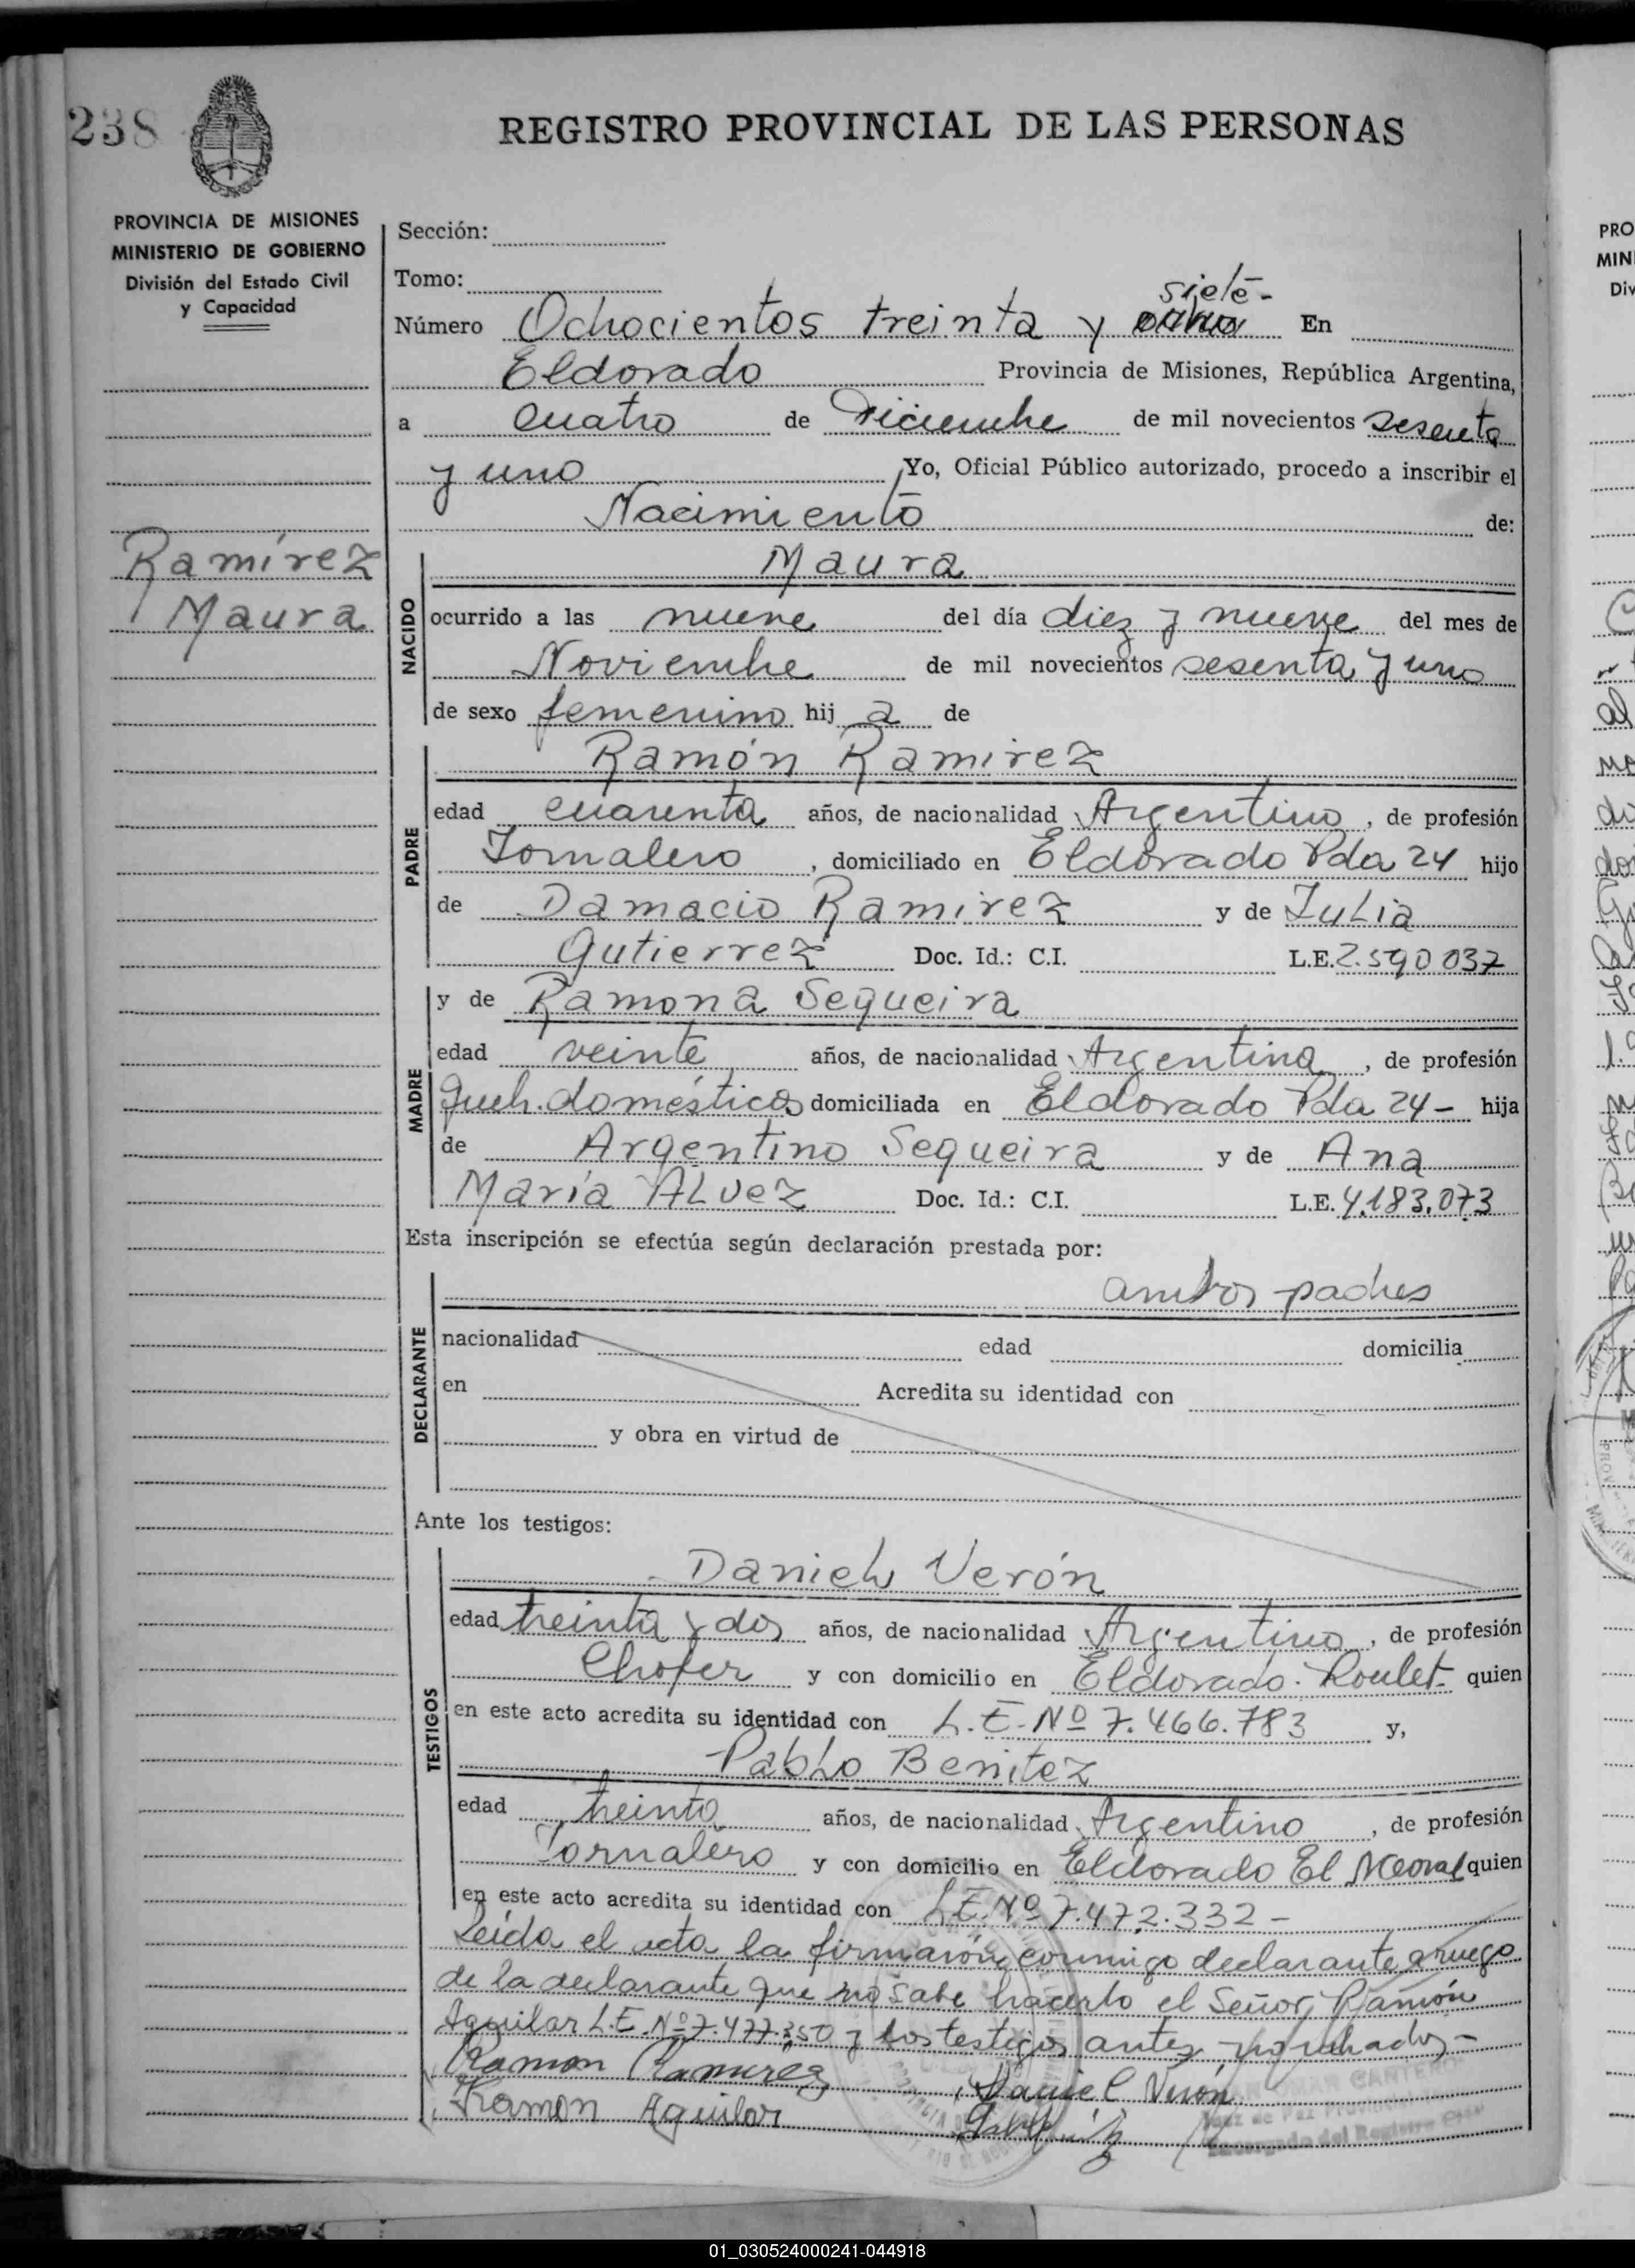 238
REGISTRO PROVINCIAL DE LAS PERSONAS
PROVINCIA DE MISIONES
MINISTERIO DE GOBIERNO
División del Estado Civil
y Capacidad
Ramírez
Maura
Sección:
Tomo:
siete-
Número Ochocientos treinta y ocho En
Eldorado Provincia de Misiones, República Argentina,
a cuatro de Diciembre de mil novecientos sesenta
y uno Yo, Oficial Público autorizado, procedo a inscribir el
Nacimiento de:
NACIDO
Maura
ocurrido a las nueve del día diez y nueve del mes de
Noviembre de mil novecientos sesenta y uno
de sexo femenino hij a de
PADRE
Ramón Ramirez
edad cuarenta años, de nacionalidad Argentino, de profesión
Jornalero, domiciliado en Eldorado Pda 24 hijo
de Damacio Ramirez y de Julia
Gutierrez Doc. Id.: C.I. L.E. 2.590 037
MADRE
y de Ramona Sequeira
edad veinte años, de nacionalidad Argentina, de profesión
queh. domésticos domiciliada en Eldorado Pda 24- hija
de Argentino Sequeira y de Ana
María Alvez Doc. Id.: C.I. L.E. 4.183.073
Esta inscripción se efectúa según declaración prestada por:
DECLARANTE
ambos padres
nacionalidad edad domicilia
en Acredita su identidad con
y obra en virtud de
Ante los testigos:
TESTIGOS
Daniel Verón
edad treinta y dos años, de nacionalidad Argentino, de profesión
Chofer y con domicilio en Eldorado. Roulet- quien
en este acto acredita su identidad con L.E. Nº 7.466.783 y,
Pablo Benitez
edad treinta años, de nacionalidad Argentino, de profesión
Jornalero y con domicilio en Eldorado El quien
en este acto acredita su identidad con L.E. Nº 7.472.332-
Leída el acta la firmarón conmigo declarante a ruego
de la declarante que no sabe hacerlo el Señor Ramón
Aguilar L.E. Nº 7.477.350 y los testigos antes
Ramon Ramirez
Daniel Verón
Ramon Aguilar
01_030524000241-044918